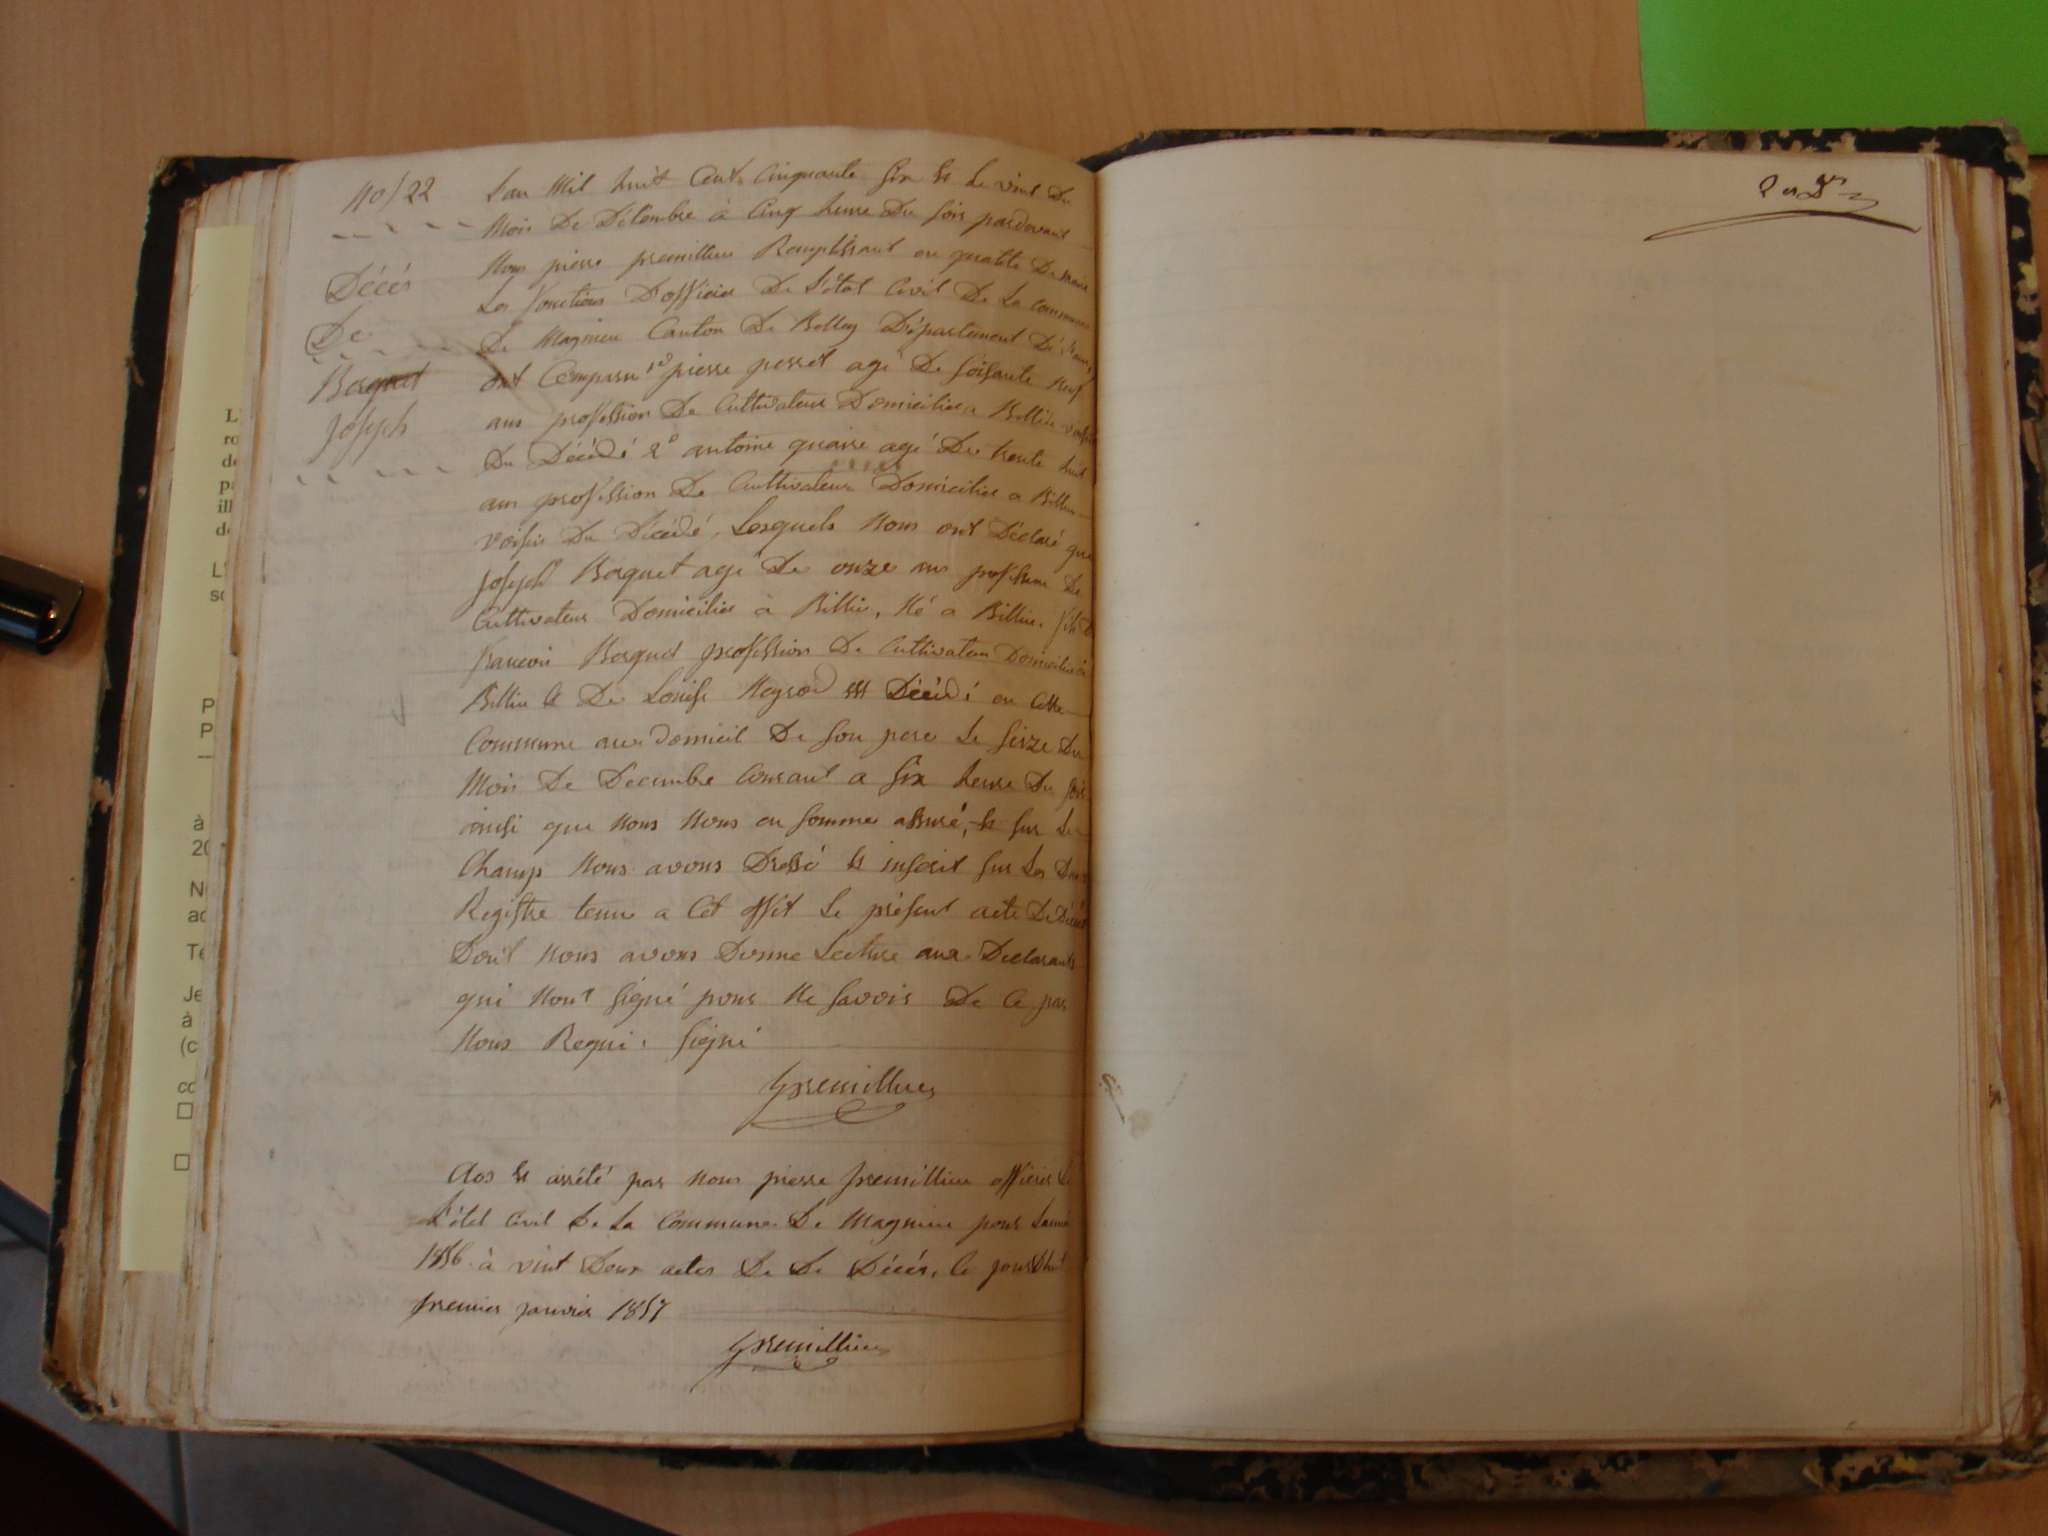 No/22
Décés
De
Borquet
Joseph
L'an Mil huit Cent Cinquante six & Le vint Du
Mois De Décembre à Cinq heure Du soir pardevant
Nous pierre premillieu Remplissant en qualité De maire
Les fonctions D'officier De L'état Civil De La commune
De Magnieu Canton De Belley Département De
ont Comparu 1º pierre perret agé De soisante neuf
ans profession De Cultivateur Domicilier a Billieu voisin
Du Décédé 2º antoine quaire agé De trente huit
ans profession De Cultivateur Domicilier a Billieu
voisin Du Décédé, Lesquels Nous ont Déclaré que
Joseph Borquet agé De onze ans profession De
Cultivateur Domicilier à Billieu, Né a Billieu, fils De
francoi Borquet profession De Cultivateur Domicilier à
Billieu & De Louise Neyrod est Décédé en Cette
Commune au domicil De son pere Le seize Du
Mois De Decembre Courant a six heure Du soir
ainsi que Nous Nous en somme assuré, & sur Le
Champ Nous avons Dressé & inscrit sur Les Deux
Registre tenu a Cet effet Le présent acte De Décés
Dont Nous avons Donné Lecture aux Declarants
qui Nont signé pour Ne savoir De Ce par
Nous Requi. signé
premillieu
Clos & arrété par nous pierre premillieu officier De
L'état civil De La Commune De Magnieu pour Lannée
1856 à vint Deux actes De De Décés, Ce jourdhui
premier janvier 1857
premillieu
L'
ro
de
pa
ill
de
L'
so
P
P
à
20
N
ac
Te
Je
à
(c
co